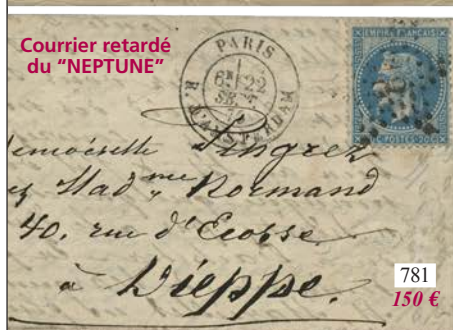 Courrier retardé
du “NEPTUNE”
PARIS
6E 22
SEPT
R. D'AMSTERDAM
EMPIRE FRANÇAIS
POSTES
emoiselle Lingrez
Mad.me Normand
40. rue d'Ecosse
à Dieppe.
781
150 €